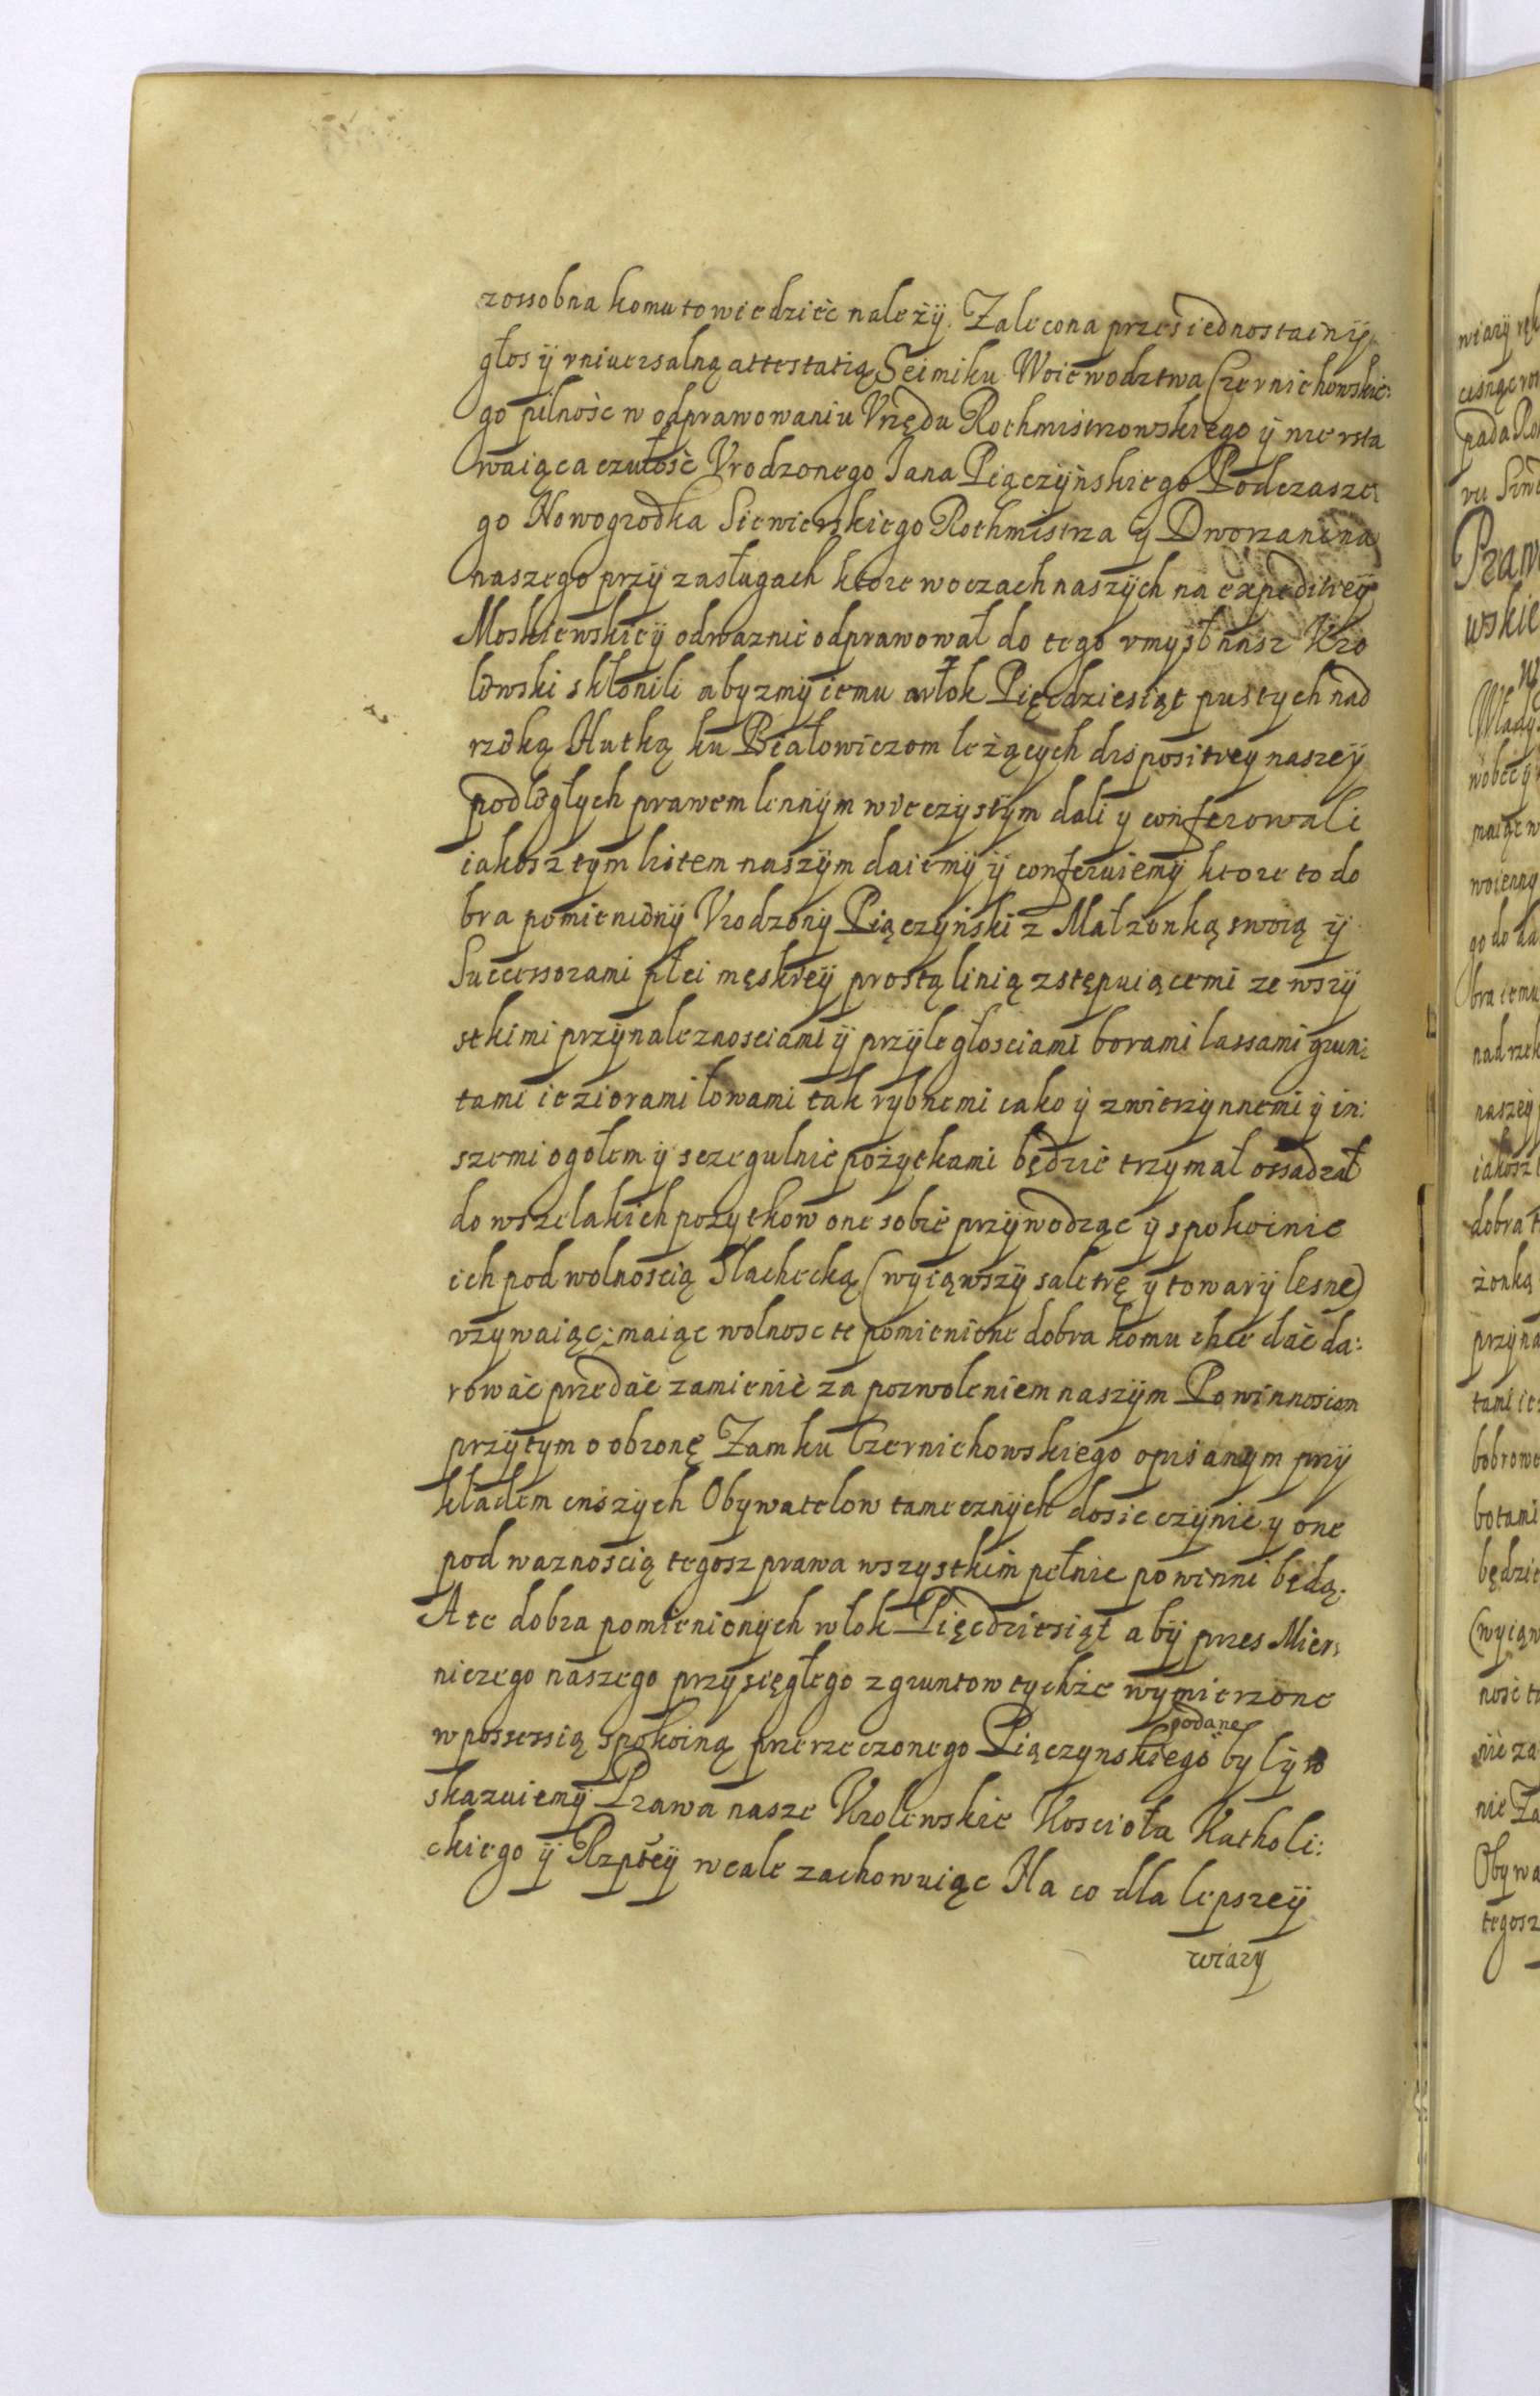 zossobna komu to wiedzieć należÿ. Zalecona przes iednostainÿ
głos ÿ vniuersalną attestatią Seimiku Woiewodztwa Czernichowskie:
go pilność w odprawowaniu Vrzędu Rothmistrzowskiego ÿ nie vsta
waiąca czułość Vrodzonego Jana Piączÿńskiego Podczasze:
go Nowogrodka Siewierskiego Rothmistrza ÿ Dworzanina
naszego przÿ zasługach ktore w oczach naszÿch na expeditieÿ
Moskiewskieÿ odwaznie odprawował do tego vmysł nasz Kro
lowski skłonili abyzmÿ iemu włok Pięćdziesiąt pustych nad
rzeką Hutką ku Białowiczom leżących dispositieÿ naszeÿ
podległych prawem lennÿm wieczÿstÿm dali ÿ conferowali
iakosz tÿm listem naszÿm daiemÿ ÿ conferuiemÿ ktore to do
bra pomienionÿ Vrodzonÿ Piączÿński z Małzonką swoią ÿ
Successorami płci męskieÿ prostą linią zstępuiącemi ze wszÿ
stkimi przÿnaleznosciami ÿ przÿległosciami borami lassami grun:
tami ieziorami łowami tak rybnemi iako ÿ zwierzynnemi ÿ in:
szemi ogołem ÿ sczegulnie pożytkami będzie trzymał ossadzał
do wszelakich pozytkow one sobie przÿwodząc ÿ spokoinie
ich pod wolnoscią Slachecką (wyiąwszÿ saletrę ÿ towarÿ lesne)
vzywaiąc: maiąc wolnosc te pomienione dobra komu chce dać da:
rować przedać zamienić za pozwoleniem naszÿm Powinnosciom
przÿtym o obronę Zamku Czernichowskiego opisanym przÿ
kładem inszÿch Obÿwatelow tamecznÿch dosic czÿnić ÿ one
pod waznoscią tegosz prawa wszystkim pełnić powinni będą.
A te dobra pomienionych włok Pięćdziesiąt abÿ przes Mier:
niczego naszego przysięgłego z gruntow tychże wymierzone
w possessią spokoiną przerzeczonego Piączynskiego podane byłÿ
skazuiemÿ Prawa nasze Krolewskie Koscioła Katholi:
ckiego ÿ Rzpteÿ wcale zachowuiąc Na co dla lepszeÿ
wiary